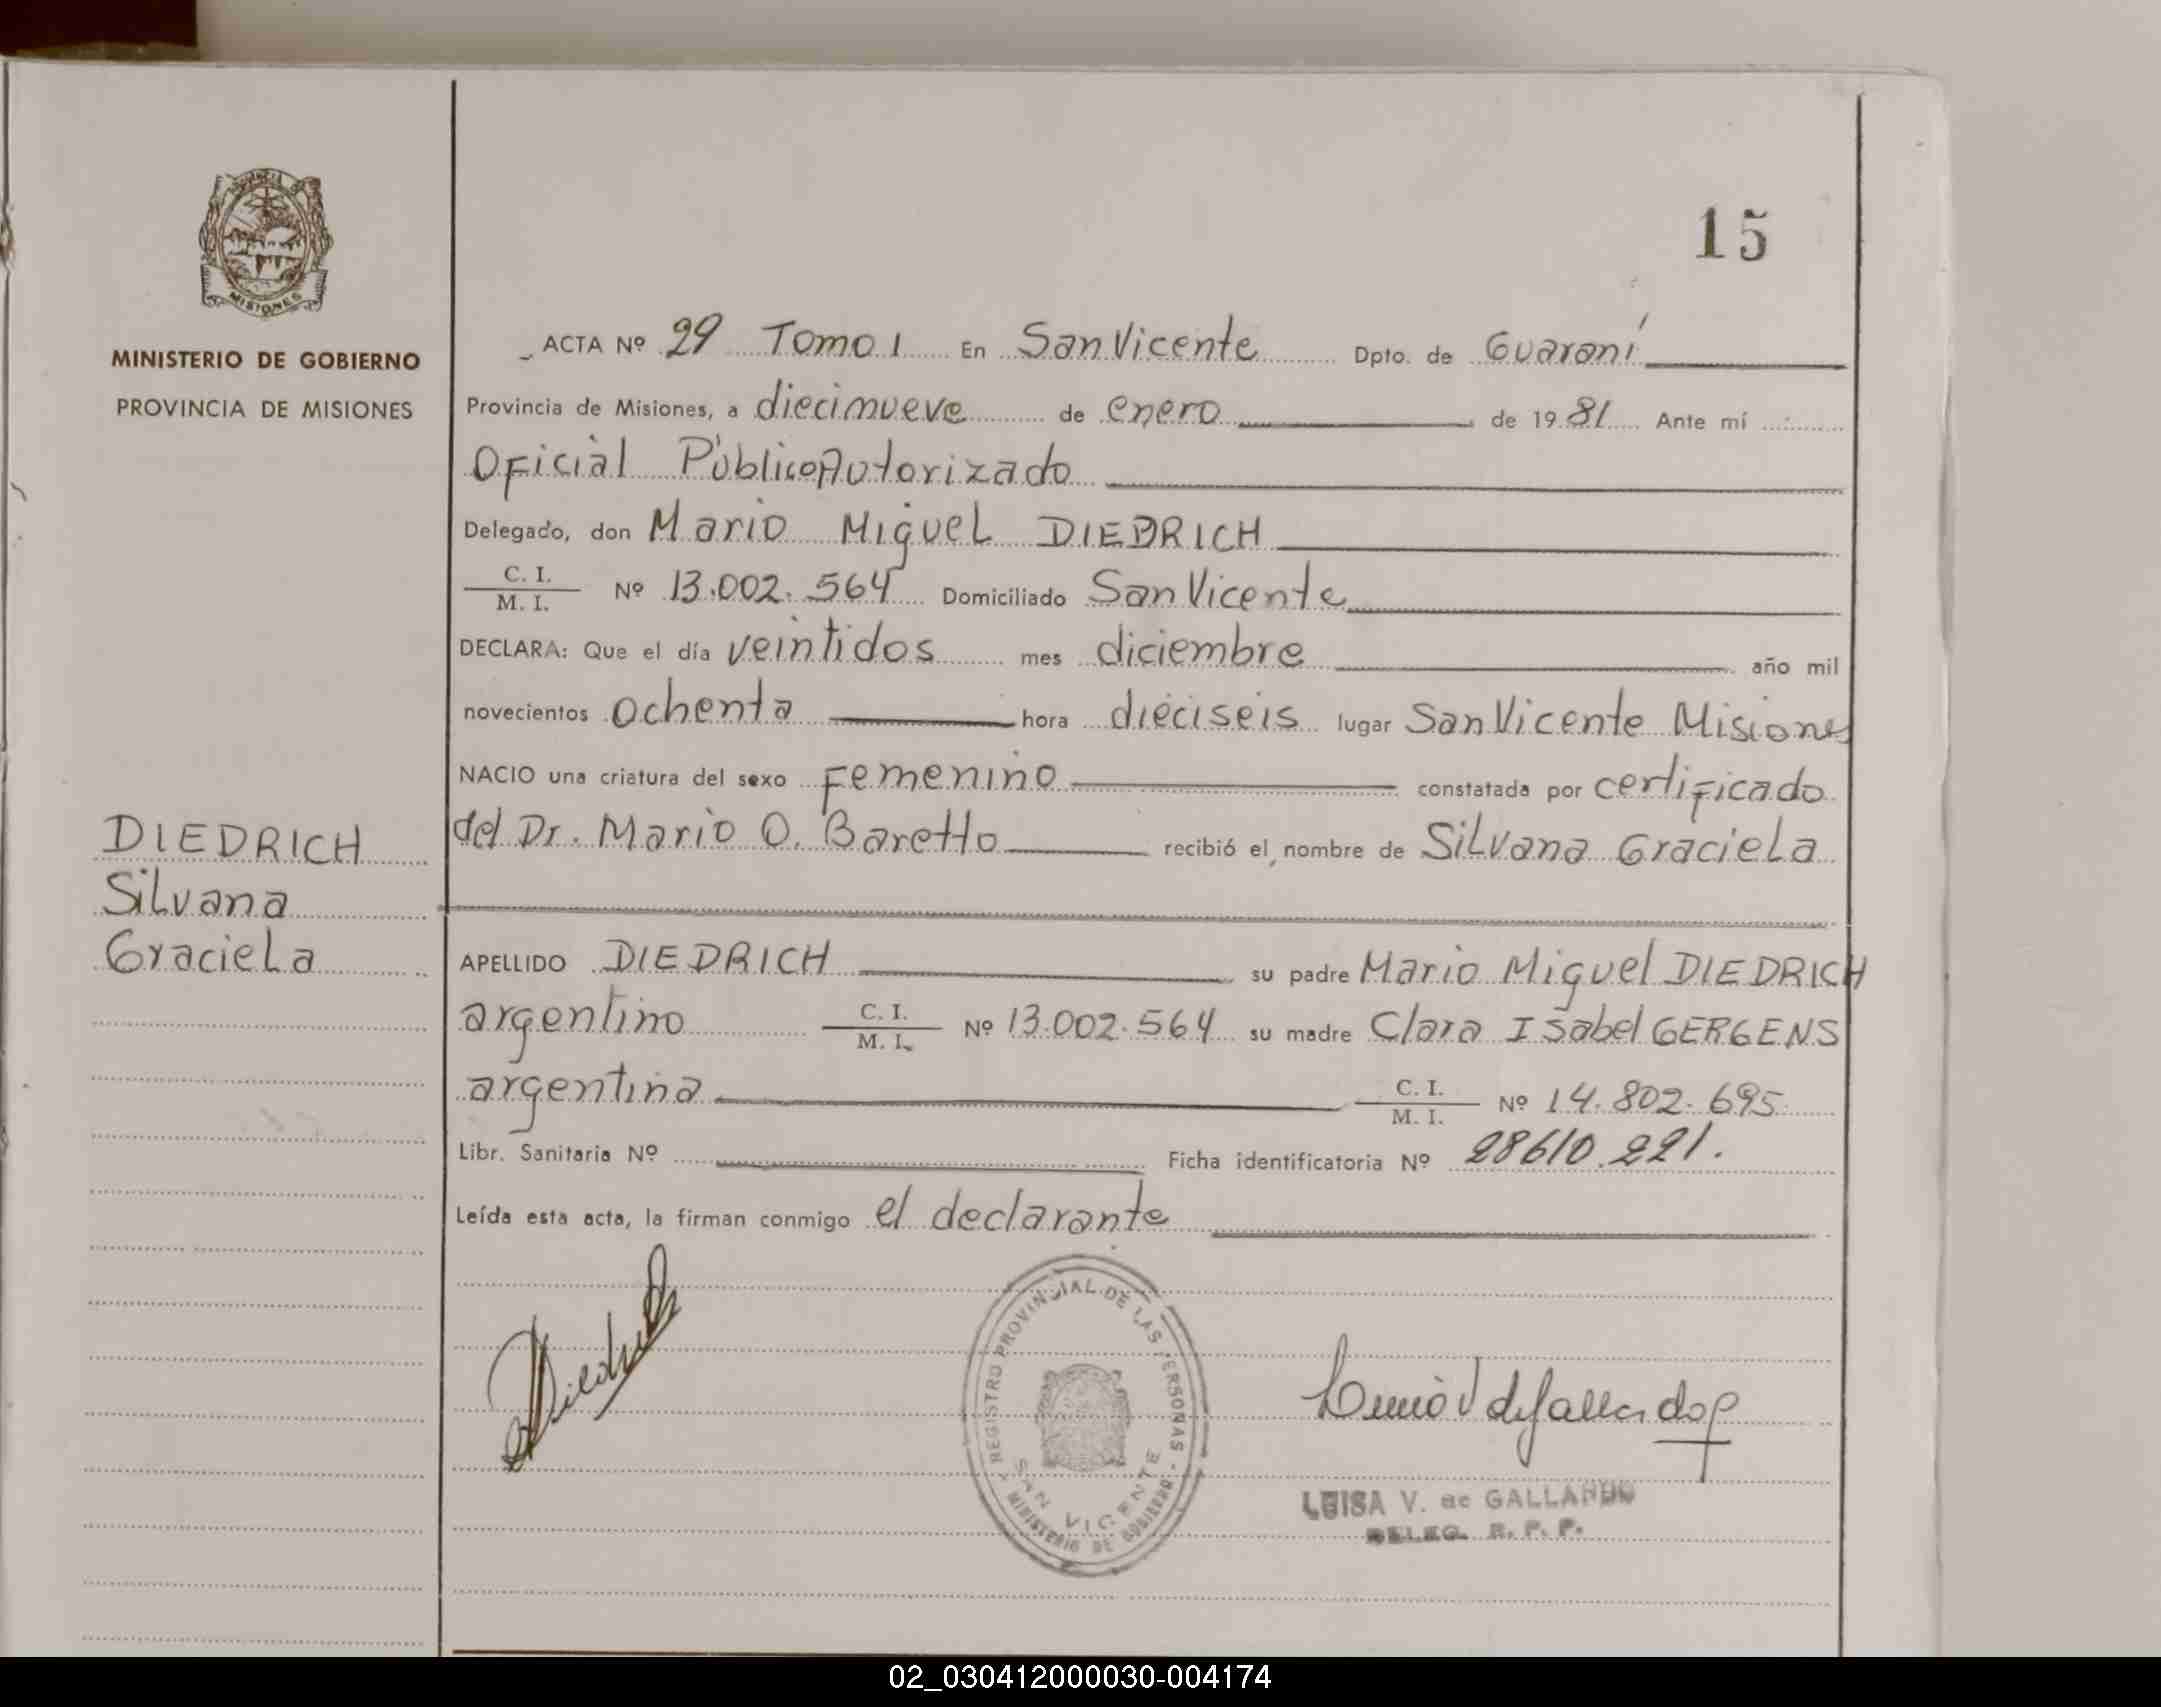 15
MISIONES
MINISTERIO DE GOBIERNO
PROVINCIA DE MISIONES
DIEDRICH
Silvana
Graciela
ACTA Nº 29 Tomo I En San Vicente Dpto. de Guaraní
Provincia de Misiones, a diecinueve de enero de 1981 Ante mí
Oficial Público Autorizado
Delegado, don Mario Miguel DIEDRICH
C. I. / M. I. Nº 13.002.564 Domiciliado San Vicente
DECLARA: Que el día veintidos mes diciembre año mil
novecientos ochenta hora dieciseis lugar San Vicente Misiones
NACIO una criatura del sexo Femenino constatada por certificado
del Dr. Mario O. Baretto recibió el nombre de Silvana Graciela
APELLIDO DIEDRICH su padre Mario Miguel DIEDRICH
argentino C. I. / M. I. Nº 13.002.564 su madre Clara Isabel GERGENS
argentina C. I. / M. I. Nº 14.802.695
Libr. Sanitaria Nº Ficha identificatoria Nº 28610.221.
Leída esta acta, la firman conmigo el declarante
REGISTRO PROVINCIAL DE LAS PERSONAS - MINISTERIO DE GOBIERNO -
SAN VICENTE
LUISA V. de GALLARDO
DELEG. R. P. P.
02_030412000030-004174